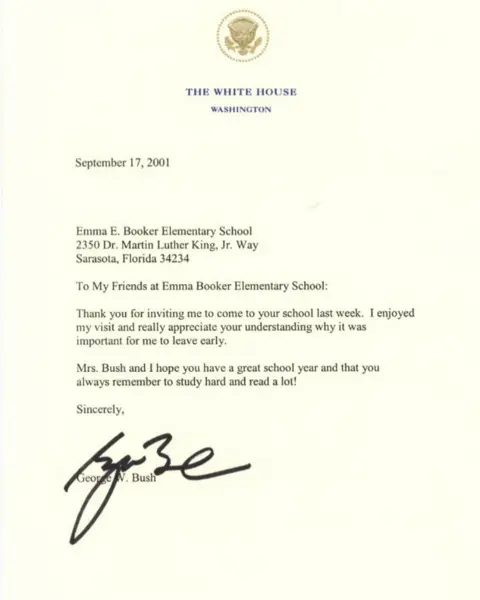 THE WHITE HOUSE
WASHINGTON
September 17, 2001
Emma E. Booker Elementary School
2350 Dr. Martin Luther King, Jr. Way
Sarasota, Florida 34234
To My Friends at Emma Booker Elementary School:
Thank you for inviting me to come to your school last week. I enjoyed
my visit and really appreciate your understanding why it was
important for me to leave early.
Mrs. Bush and I hope you have a great school year and that you
always remember to study hard and read a lot!
Sincerely,
George W. Bush